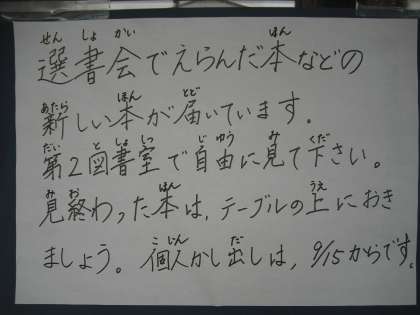 選書会でえらんだ本などの
新しい本が届いています。
第2図書室で自由に見て下さい。
見終わった本は，テーブルの上におき
ましょう。個人かし出しは，9/15からです。